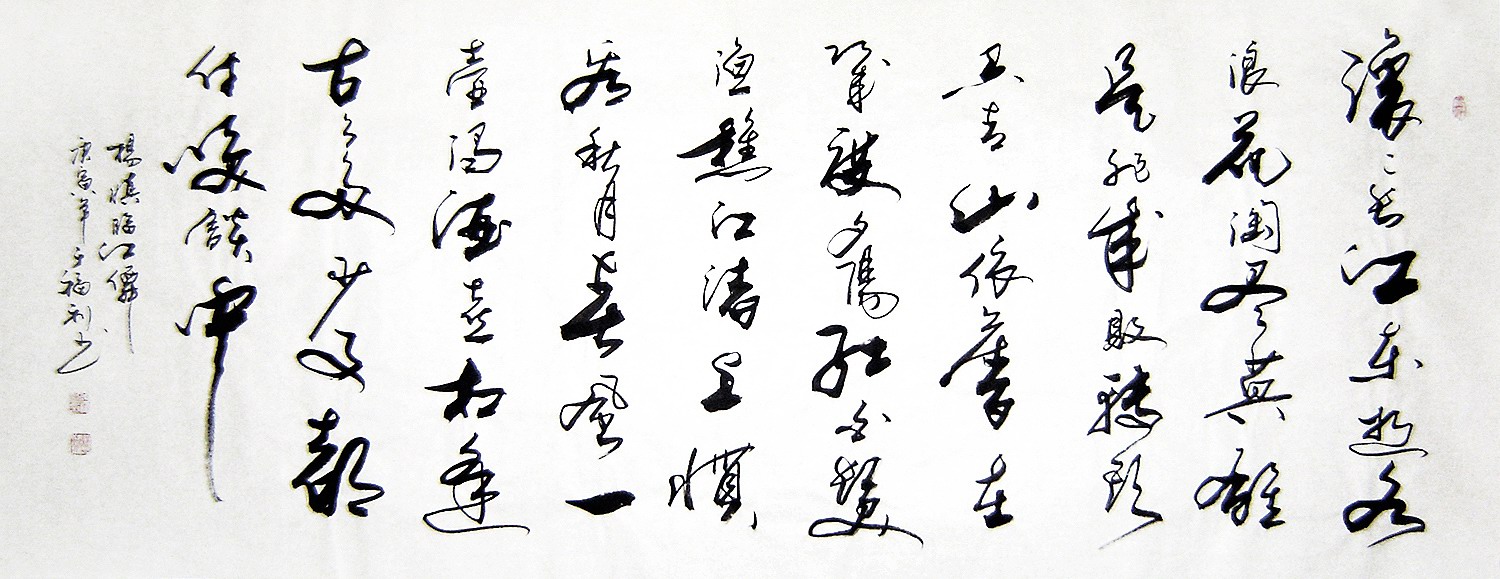 滚々长江东逝水
浪花淘尽英雄
是非成败转头
空青山依舊在
幾度夕陽红白髮
渔樵江渚上惯
看秋月春風一
壶浊酒喜相逢
古今多少事都
付咲談中
楊慎臨江僊
庚寅年王福利书